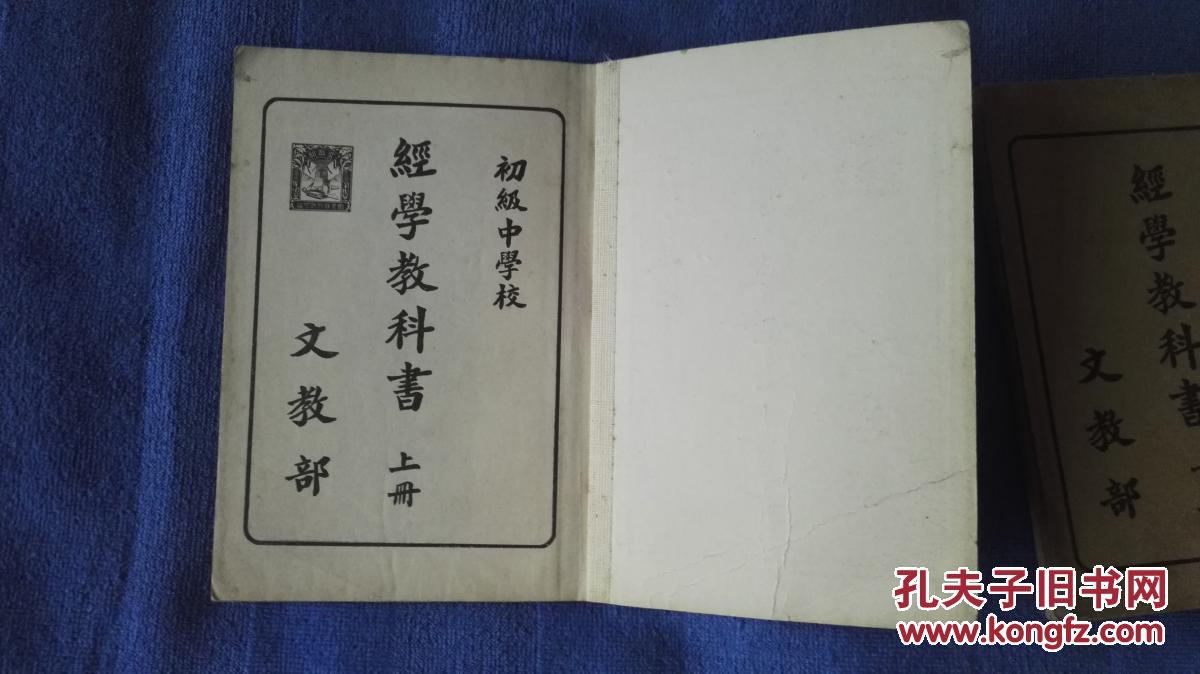 初級中學校
經學教科書 上冊
文教部
經學教科書
文教部
孔夫子旧书网
www.kongfz.com